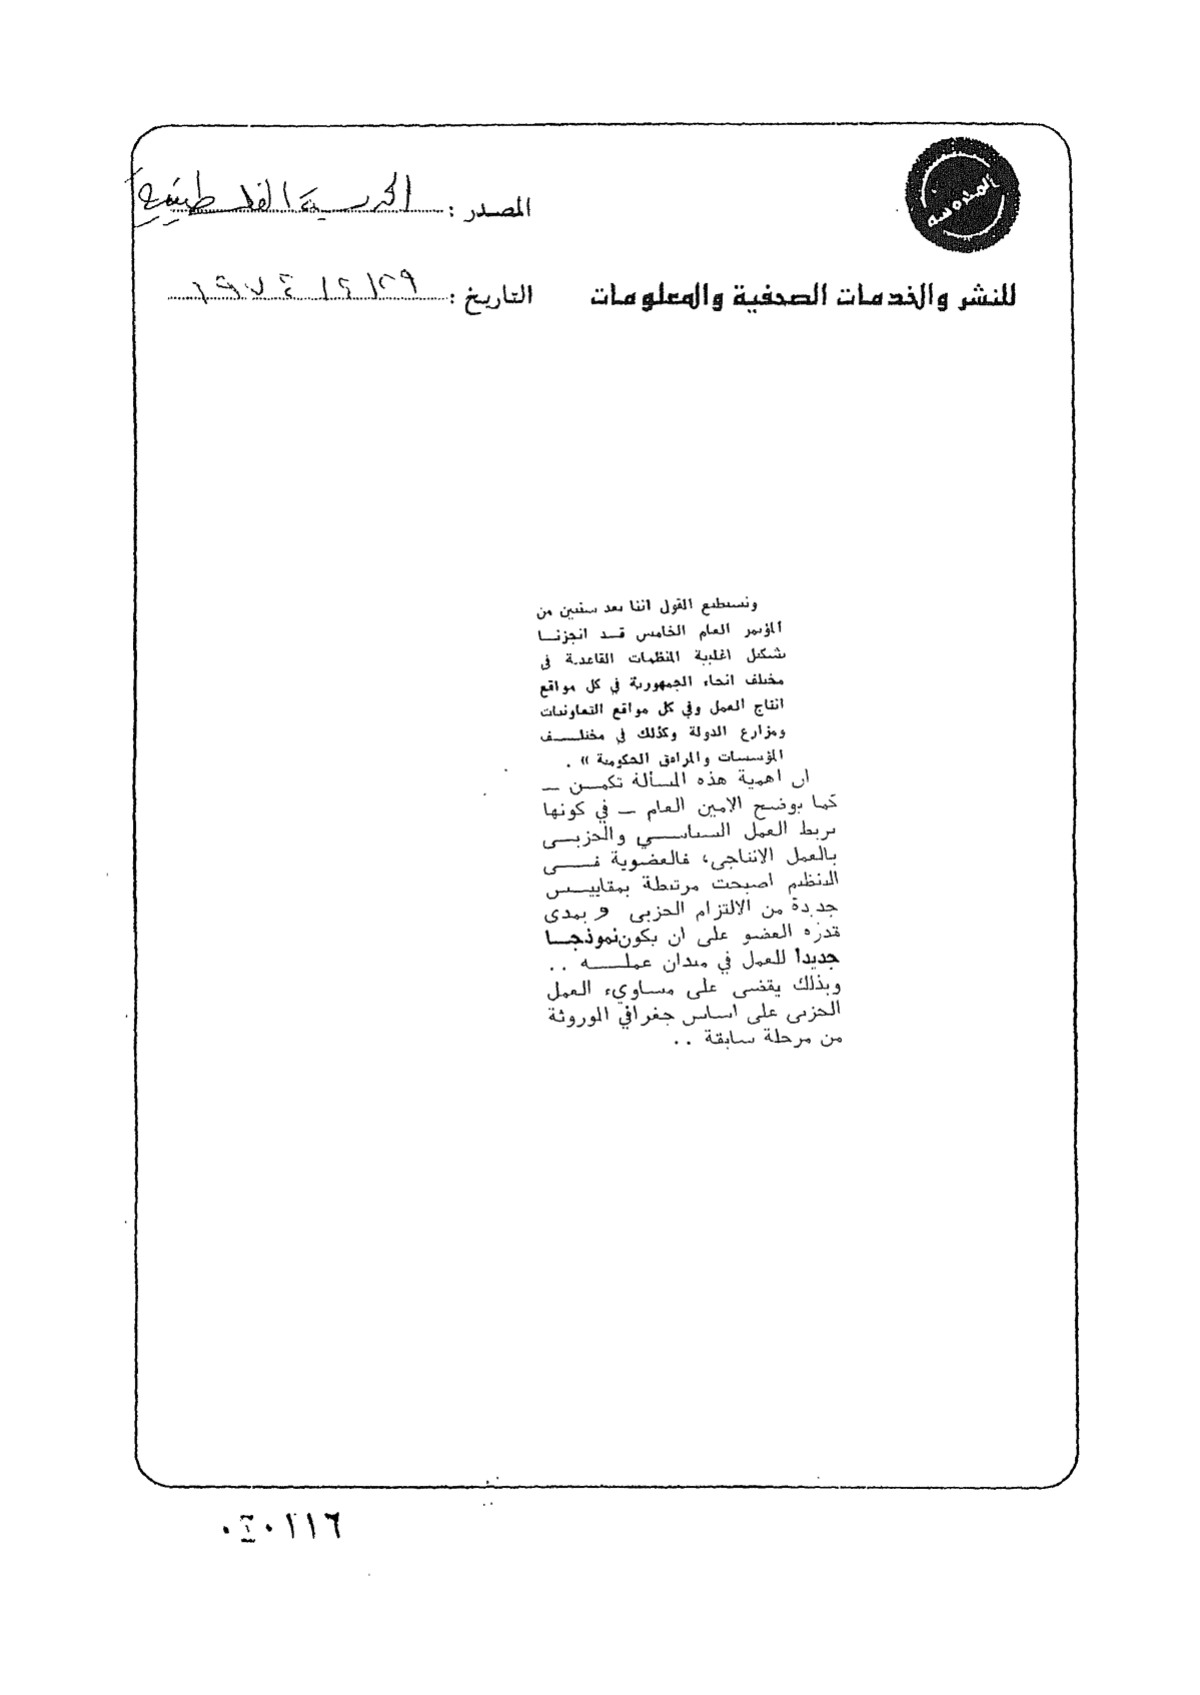 المدروسه
للنشر والخدمات الصحفية والمعلومات
المصدر : الحرية الفلسطينية
التاريخ : ٢٩ / ٤ / ١٩٧٤
ونستطيع القول اننا بعد سنتين من
المؤتمر العام الخامس قد انجزنا
تشكيل اغلبية المنظمات القاعدية في
مختلف انحاء الجمهورية في كل مواقع
انتاج العمل وفي كل مواقع التعاونيات
ومزارع الدولة وكذلك في مختلف
المؤسسات والمرافق الحكومية » .
ان اهمية هذه المسألة تكمن ــ
كما يوضح الامين العام ــ في كونها
تربط العمل السياسي والحزبي
بالعمل الانتاجي، فالعضوية في
التنظيم اصبحت مرتبطة بمقاييس
جديدة من الالتزام الحزبي و بمدى
قدره العضو على ان يكون نموذجا
جديدا للعمل في ميدان عمله ..
وبذلك يقضى على مساوىء العمل
الحزبي على اساس جغرافي الموروثة
من مرحلة سابقة ..